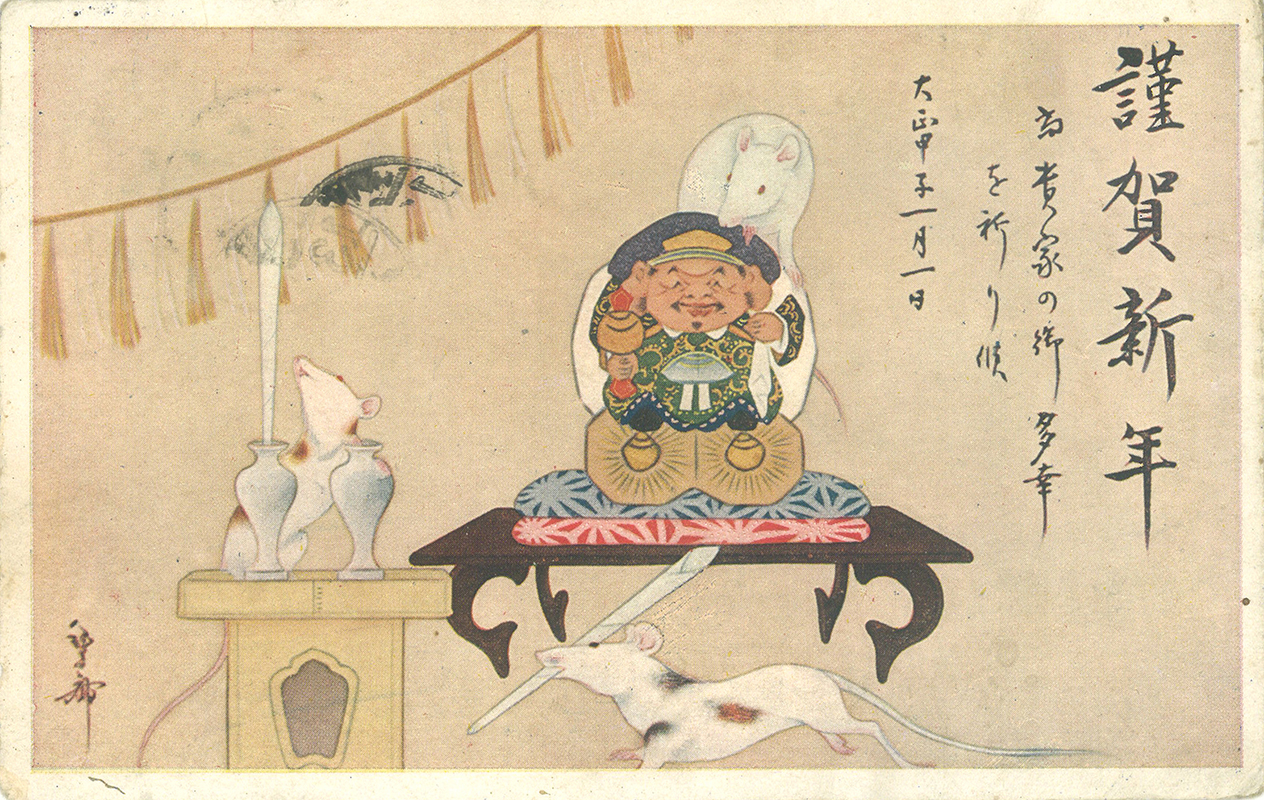 謹賀新年
尚貴家の御多幸
を祈り候
大正甲子一月一日